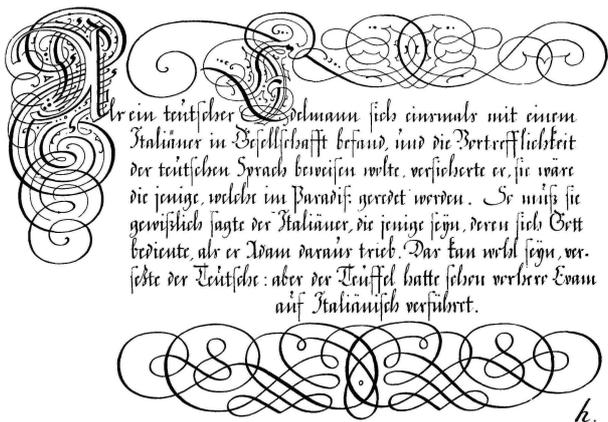 Als ein teütscher Edelmann sich einsmals mit einem
Italiäner in Gesellschafft befand, und die Vortrefflichkeit
der teütschen Sprach beweisen wolte, versicherte er, sie wäre
die jenige, welche im Paradiß geredet worden. So müß sie
gewißlich sagte der Italiäner, die jenige seÿn, deren sich Gott
bediente, als er Adam daraus trieb. Das kan wohl seÿn, ver-
setzte der Teütsche: aber der Teüffel hatte schon vorhero Evam
auf Italiänisch verführt.
h.